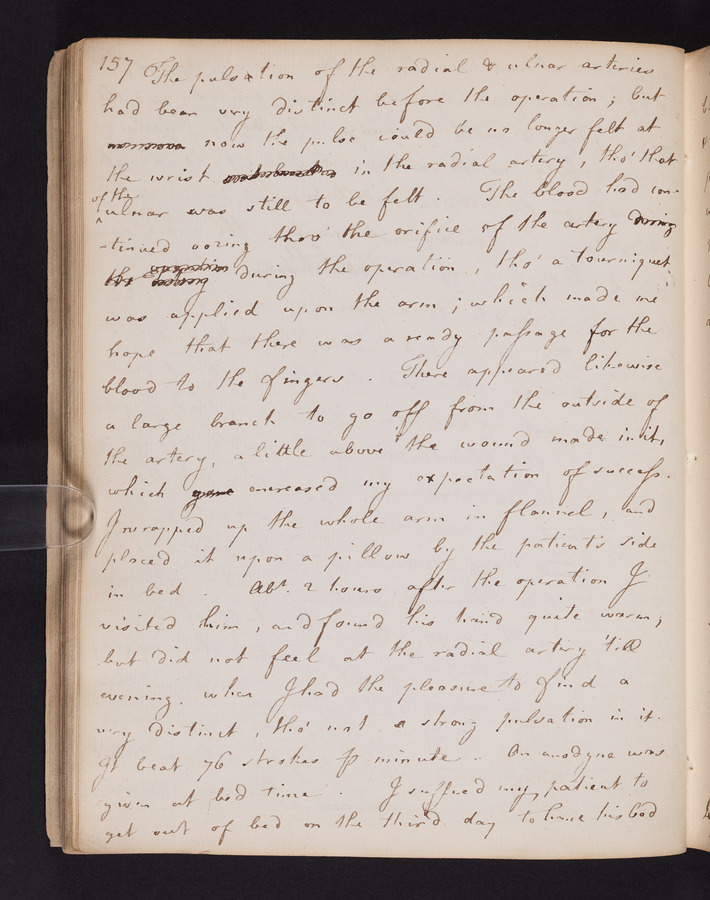 157 The pulsation of the radial & ulnar arteries
had been very distinct before the operation; but
now the pulse could be no longer felt at
the wrist in the radial artery, tho' that
of the
^ulnar was still to be felt. The blood had con-
-tinued oozing thro' the orifice of the artery during
the
during the operation, tho' a tourniquet
was applied upon the arm; which made me
hope that there was a ready passage for the
blood to the fingers. There appear'd likewise
a large branch to go off from the outside of
the artery, a little above the wound made in it,
which gave encreased my expectation of success.
I wrapped up the whole arm in flannel, and
placed it upon a pillow by the patient's side
in bed. Abt. 2 hours after the operation I
visited him, and found his hand quite warm;
but did not feel at the radial artery 'till
evening, when I had the pleasure to find a
very distinct, tho' not a strong pulsation in it.
It beat 76 strokes p minute. An anodyne was
given at bed time. I suffred my patient to
get out of bed on the third day to have his bed